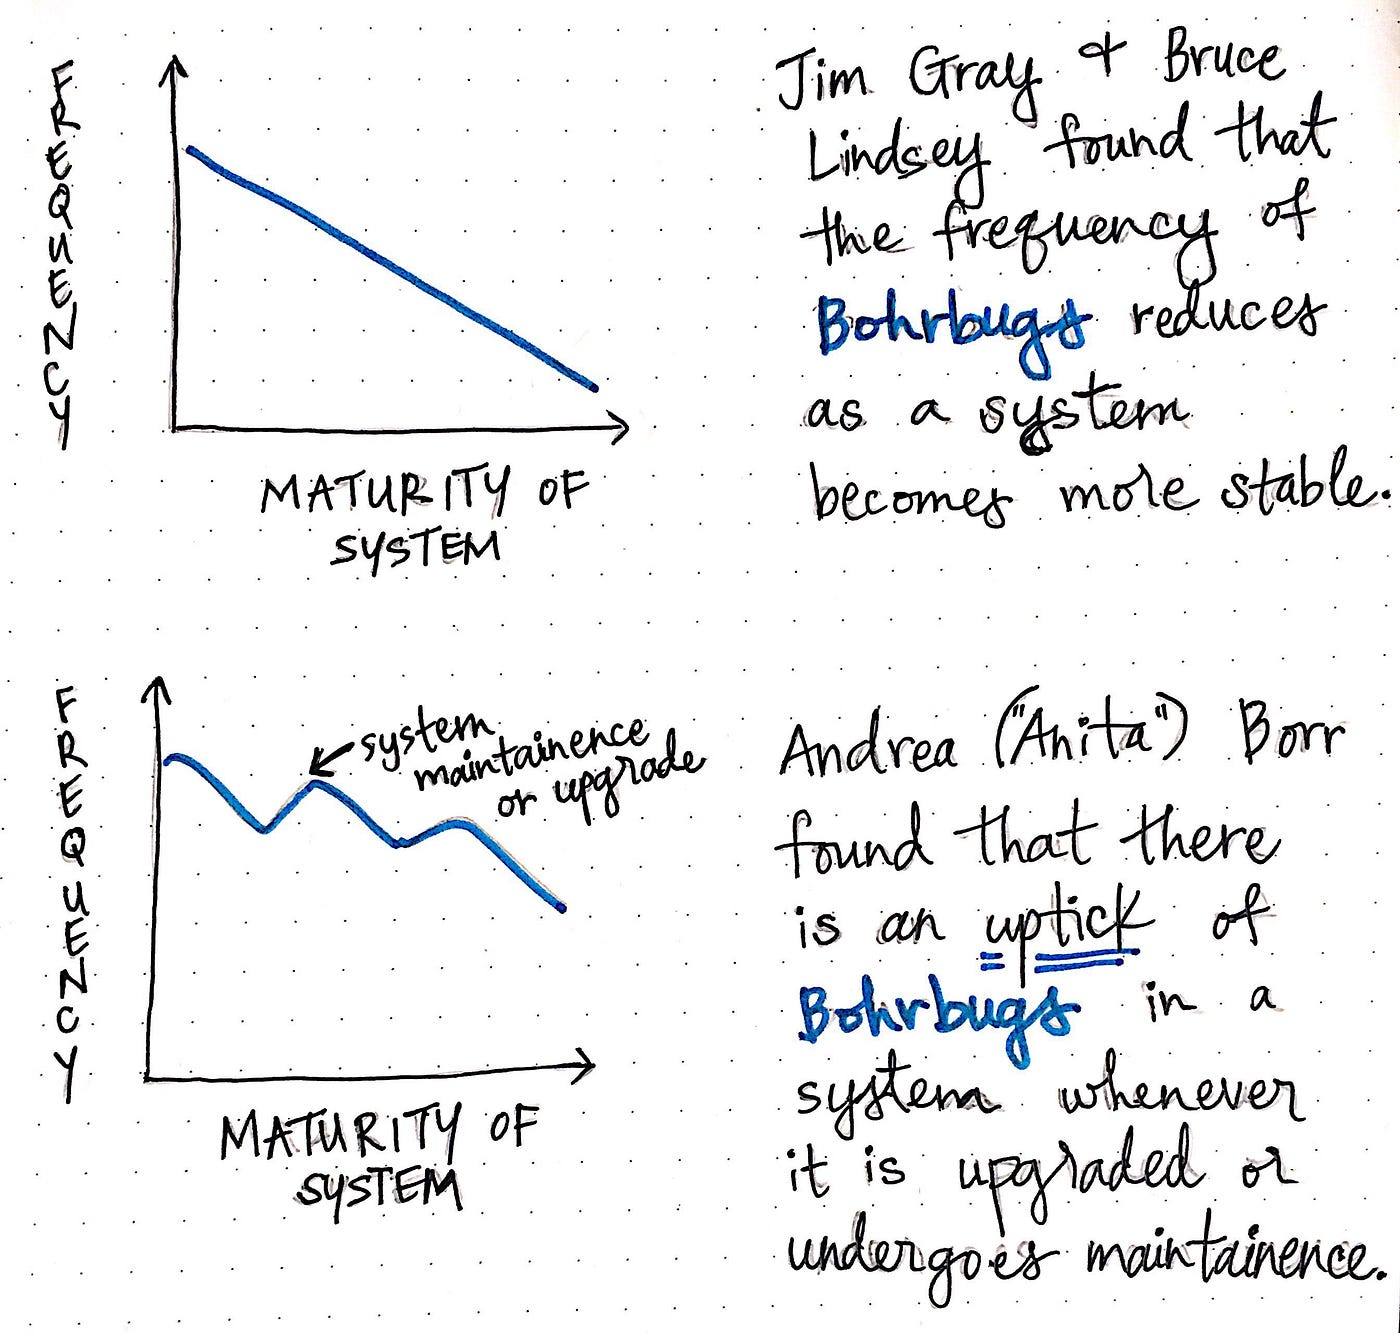 FREQUENCY
MATURITY OF
SYSTEM
Jim Gray & Bruce
Lindsey found that
the frequency of
Bohrbugs reduces
as a system
becomes more stable.
FREQUENCY
system
maintainence
or upgrade
MATURITY OF
SYSTEM
Andrea ("Anita") Borr
found that there
is an uptick of
Bohrbugs in a
system whenever
it is upgraded or
undergoes maintainence.